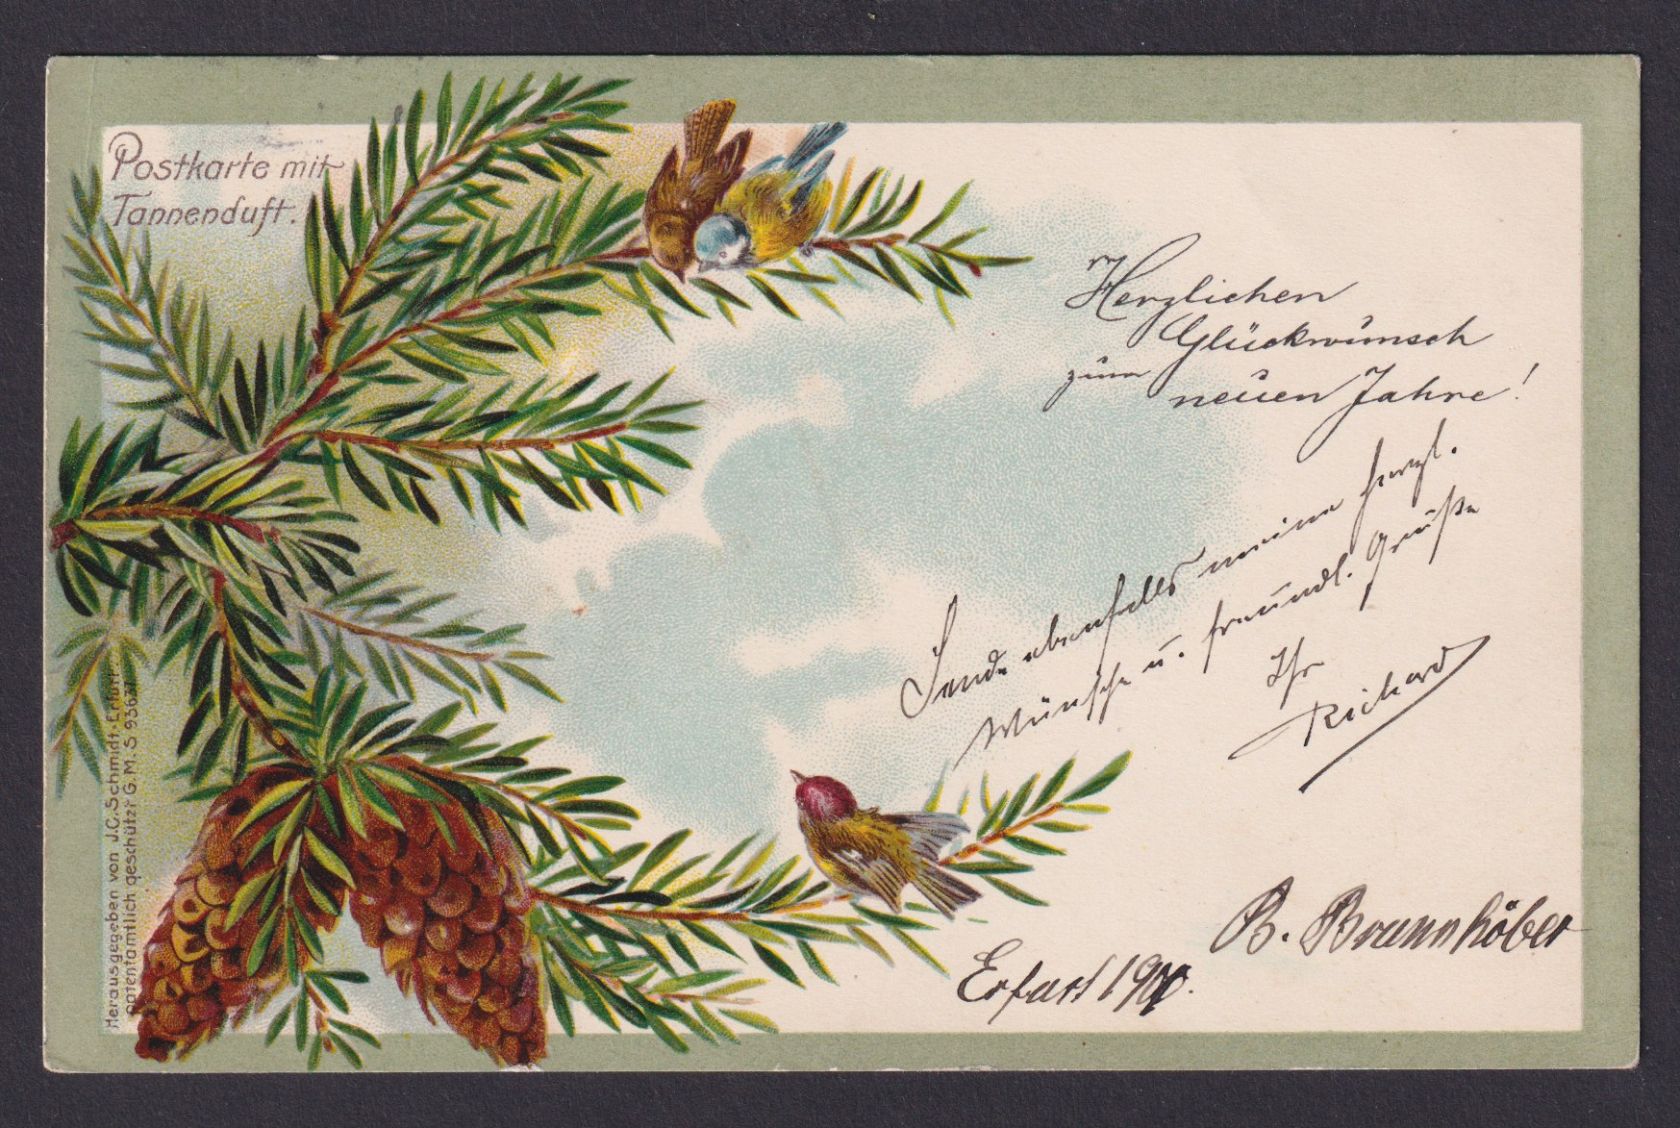 Postkarte mit
Tannenduft.
Herzlichen
Glückwunsch
zum
neuen Jahre!
Sende ebenfalls meine herzl.
Wünsche u. freundl. Grüße
Ihr
Richard
B. Braunhöber
Erfurt 1900.
Herausgegeben von J.C. Schmidt, Erfurt.
patentamtlich geschützt G. M. S 93637